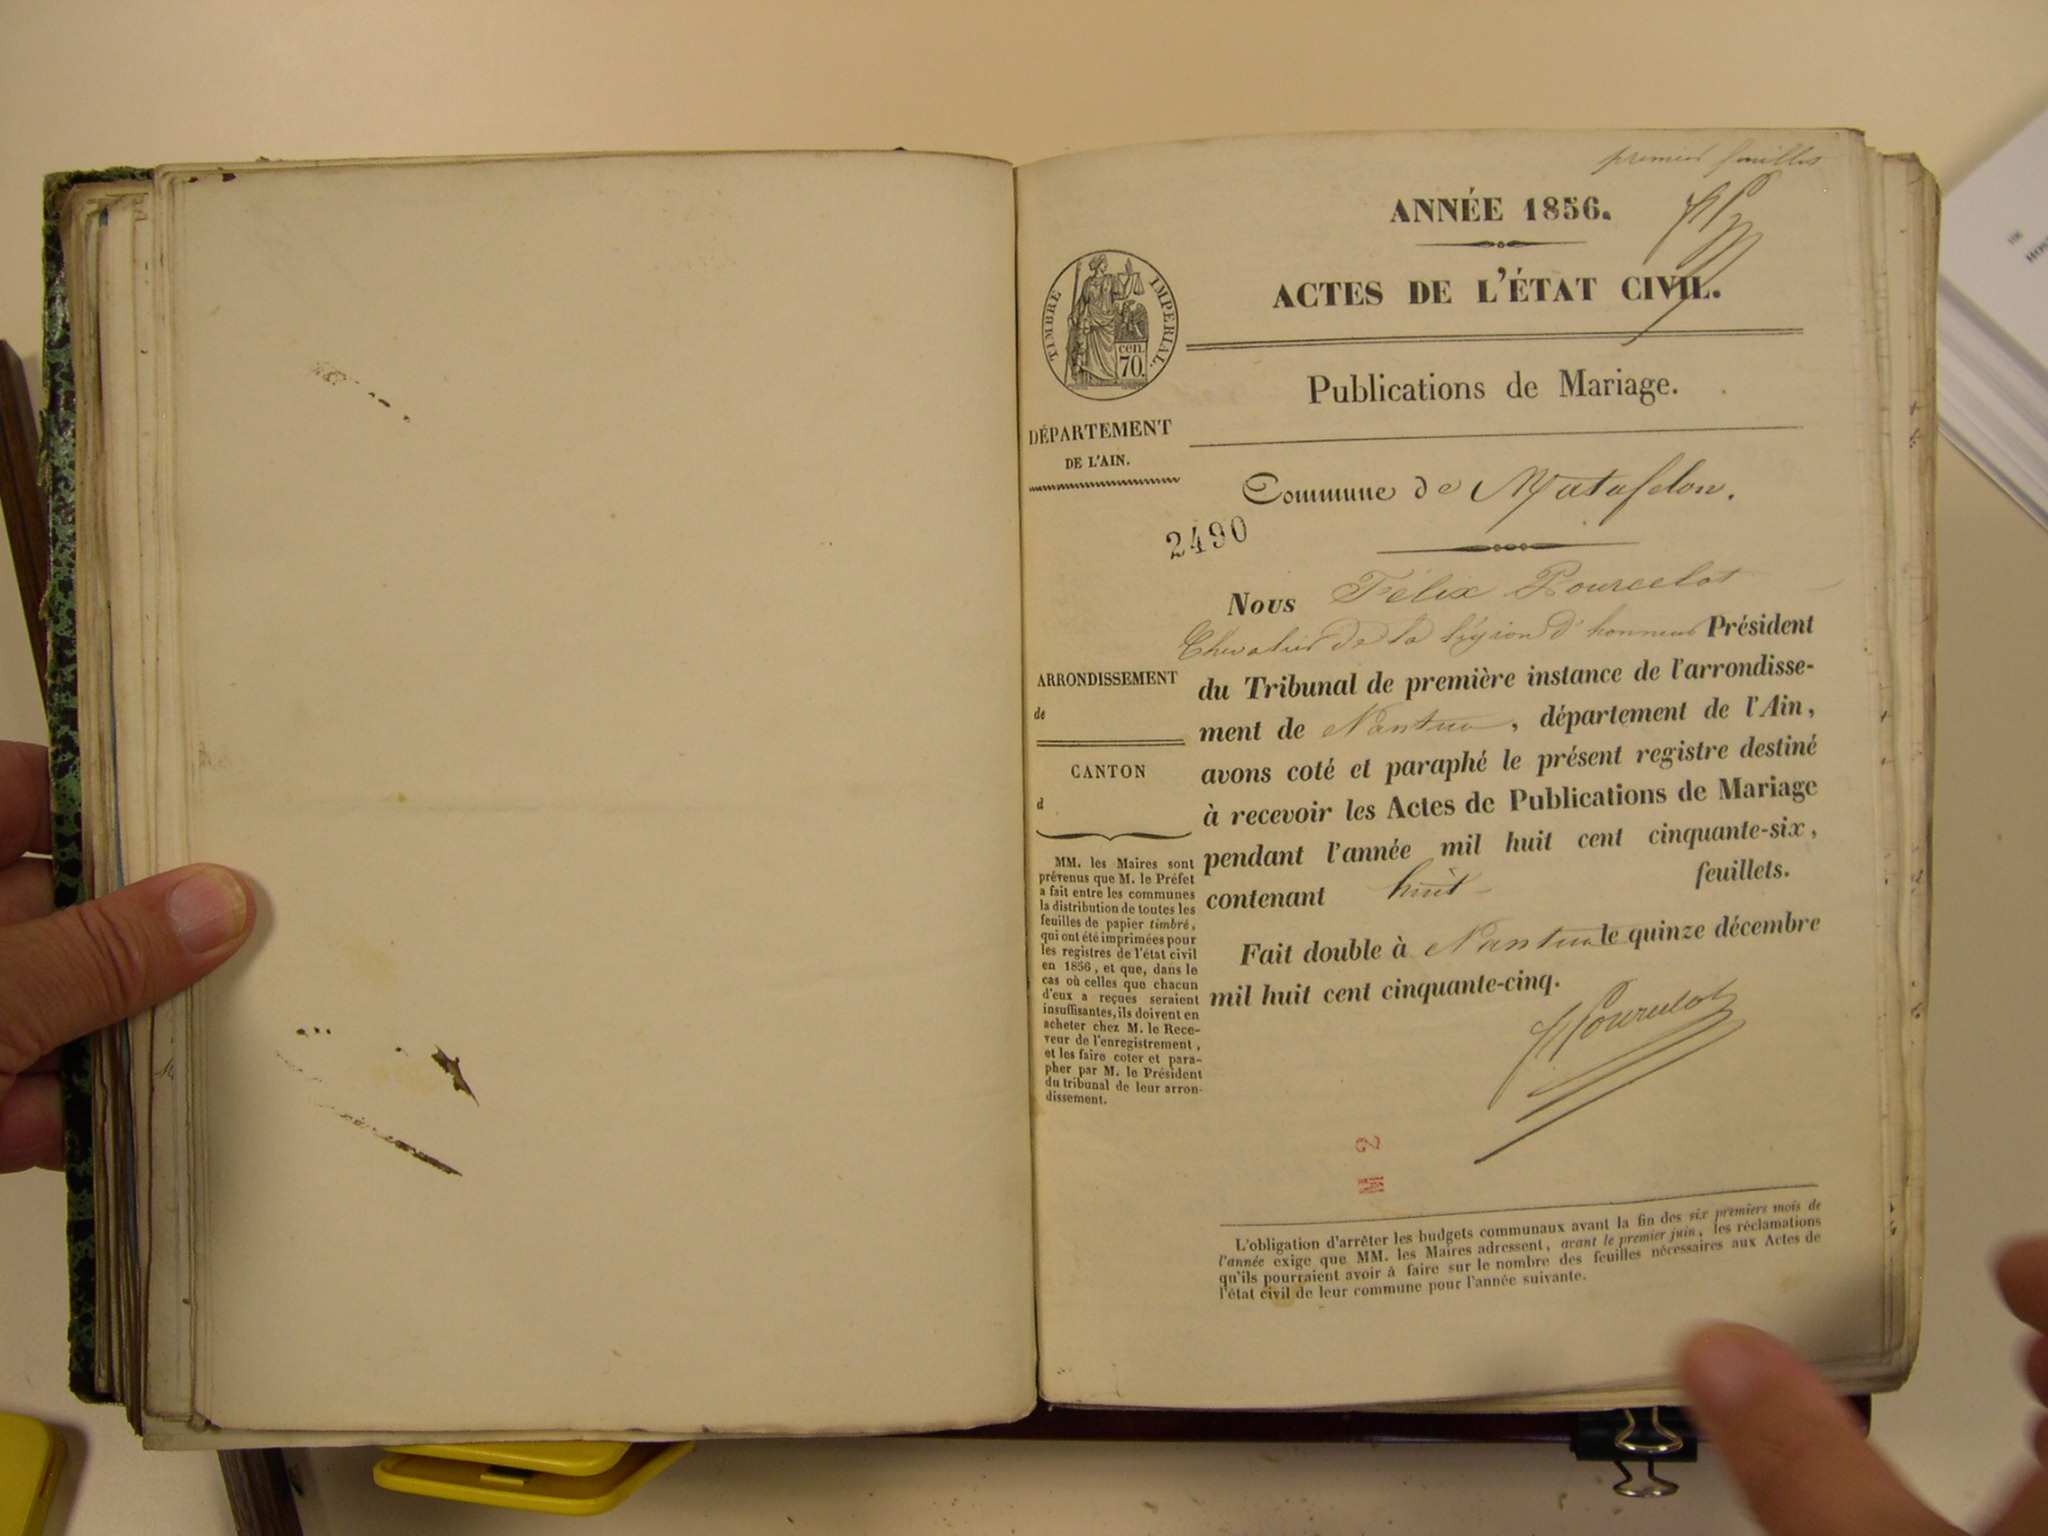 premier feuillet
ANNÉE 1856.
ACTES DE L'ÉTAT CIVIL.
TIMBRE IMPERIAL.
cen.
70.
Publications de Mariage.
DÉPARTEMENT
DE L'AIN.
Commune de Matafelon.
2490
Nous Félix Pourcelot
Chevalier de la légion d'honneur Président
du Tribunal de première instance de l'arrondisse-
ment de Nantua, département de l'Ain,
avons coté et paraphé le présent registre destiné
à recevoir les Actes de Publications de Mariage
pendant l'année mil huit cent cinquante-six,
contenant huit feuillets.
Fait double à Nantua le quinze décembre
mil huit cent cinquante-cinq.
Pourcelot
ARRONDISSEMENT
de
CANTON
d
MM. les Maires sont
prévenus que M. le Préfet
a fait entre les communes
la distribution de toutes les
feuilles de papier timbré,
qui ont été imprimées pour
les registres de l'état civil
en 1856, et que, dans le
cas où celles que chacun
d'eux a reçues seraient
insuffisantes, ils doivent en
acheter chez M. le Rece-
veur de l'enregistrement,
et les faire coter et para-
pher par M. le Président
du tribunal de leur arron-
dissement.
L'obligation d'arrêter les budgets communaux avant la fin des six premiers mois de
l'année exige que MM. les Maires adressent, avant le premier juin, les réclamations
qu'ils pourraient avoir à faire sur le nombre des feuilles nécessaires aux Actes de
l'état civil de leur commune pour l'année suivante.